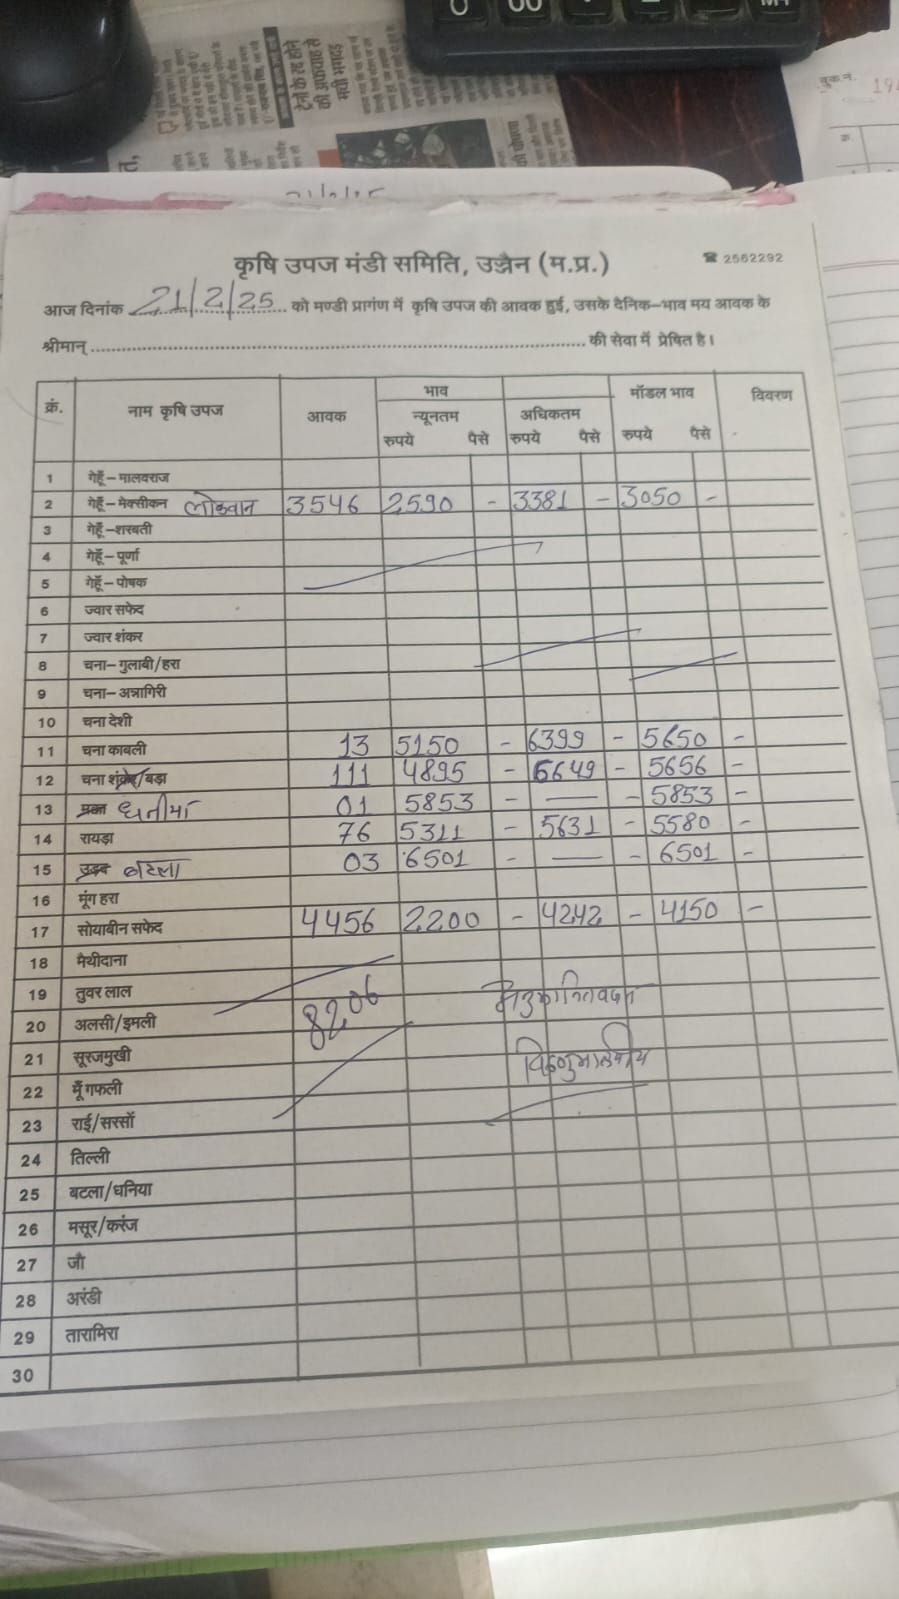 कृषि उपज मंडी समिति, उज्जैन (म.प्र.) ☎ 2562292
आज दिनांक 21/2/25 को मण्डी प्रागंण में कृषि उपज की आवक हुई, उसके दैनिक-भाव मय आवक के
श्रीमान् की सेवा में प्रेषित है।
क्रं. नाम कृषि उपज आवक भाव मॉडल भाव विवरण
न्यूनतम अधिकतम
रुपये पैसे रुपये पैसे रुपये पैसे
1 गेहूँ-मालवराज
2 गेहूँ-मेक्सीकन लोकवान 3546 2590 - 3381 - 3050 -
3 गेहूँ-शरबती
4 गेहूँ-पूर्णा
5 गेहूँ-पोषक
6 ज्वार सफेद
7 ज्वार शंकर
8 चना-गुलाबी/हरा
9 चना-अन्नागिरी
10 चना देशी
11 चना काबली 13 5150 - 6399 - 5650 -
12 चना शंकर/बड़ा 111 4895 - 6649 - 5656 -
13 मक्का धनीया 01 5853 - — - 5853 -
14 रायड़ा 76 5311 - 5631 - 5580 -
15 उड़द बटला 03 6501 - — - 6501 -
16 मूंग हरा
17 सोयाबीन सफेद 4456 2200 - 4242 - 4150 -
18 मैथीदाना
19 तुवर लाल
20 अलसी/इमली 8206
21 सूरजमुखी
22 मूँगफली
23 राई/सरसों
24 तिल्ली
25 बटला/धनिया
26 मसूर/करंज
27 जौ
28 अरंडी
29 तारामिरा
30
बुक नं.
क्र.